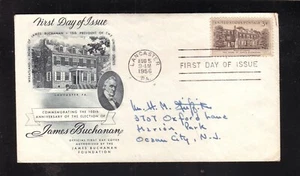 First Day of Issue
JAMES BUCHANAN - 15th PRESIDENT OF THE
LANCASTER, PA.
COMMEMORATING THE 100th
ANNIVERSARY OF THE ELECTION OF
James Buchanan
OFFICIAL FIRST DAY COVER
AUTHORIZED BY THE
JAMES BUCHANAN
FOUNDATION
LANCASTER
AUG 5
9-AM
1956
PA.
FIRST DAY OF ISSUE
3¢
Mr. H. M. Griffith
3701 Oxford Lane
Marion Park
Ocean City, N.J.